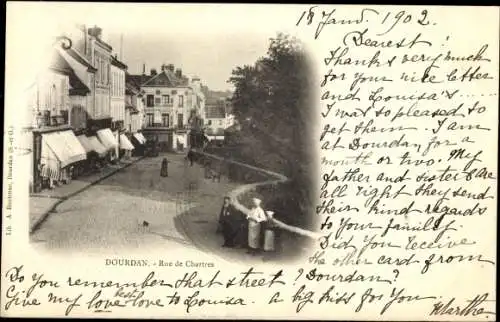 18 Janv 1902.
Dearest!
Thanks very much
for your nice letter
and Louisa's...
I was so pleased to
get them. I am
at Dourdan, for a
month or two. My
father and sister are
all right they send
their kind regards
to your family.
Did you receive
the other card from
Dourdan?
DOURDAN. - Rue de Chartres
Lib. A. Boutroue, Dourdan (S.-et-O.)
Do you remember that street?
Give my love best love to Louisa. a big kiss for you
Marthe.